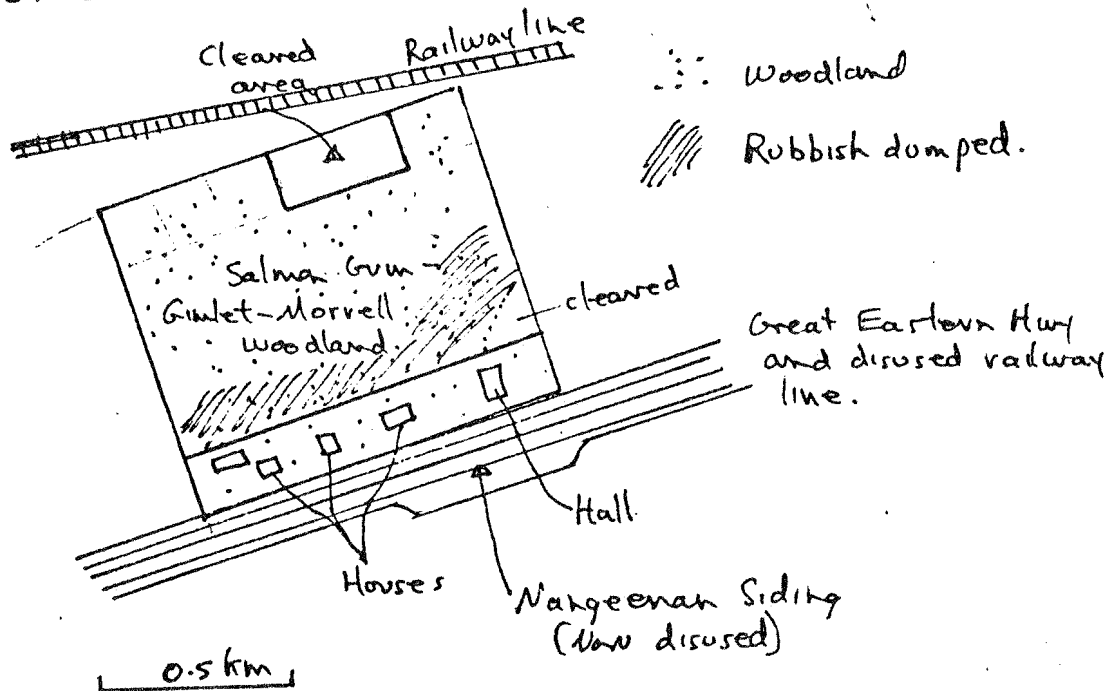 Cleared
area
Railway line
Woodland
Rubbish dumped.
Salmon Gum
Gimlet-Morrell
woodland.
cleared
Great Eastern Hwy
and disused railway
line.
Hall
Houses
Nangeenan Siding
(Now disused)
0.5 km